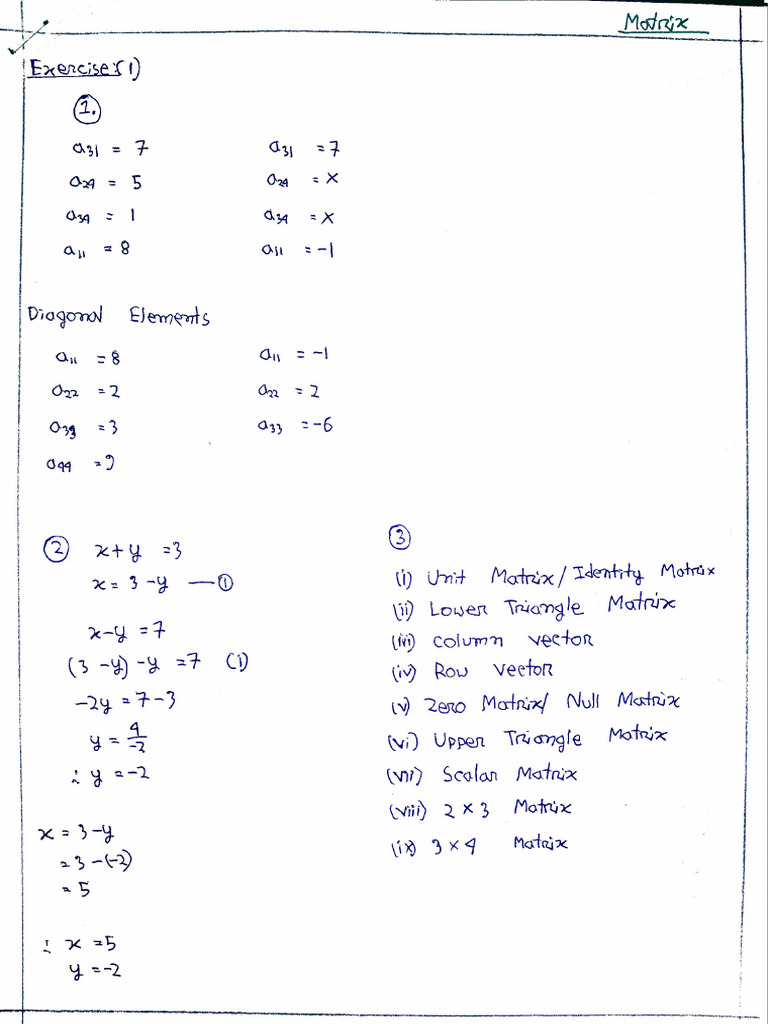 Matrix
Exercise:(1)
1.
a31 = 7 a31 = 7
a24 = 5 a24 = x
a34 = 1 a34 = x
a11 = 8 a11 = -1
Diagonal Elements
a11 = 8 a11 = -1
a22 = 2 a22 = 2
a33 = 3 a33 = -6
a44 = 9
2
x+y = 3
x = 3 -y — 1
x-y = 7
(3 -y) -y = 7 (i)
-2y = 7-3
y = 4/-2
∴ y = -2
x = 3-y
= 3 -(-2)
= 5
∴ x = 5
y = -2
3
(i) Unit Matrix/Identity Matrix
(ii) Lower Triangle Matrix
(iii) column vector
(iv) Row vector
(v) Zero Matrix/ Null Matrix
(vi) Upper Triangle Matrix
(vii) Scalar Matrix
(viii) 2 x 3 Matrix
(ix) 3 x 4 Matrix